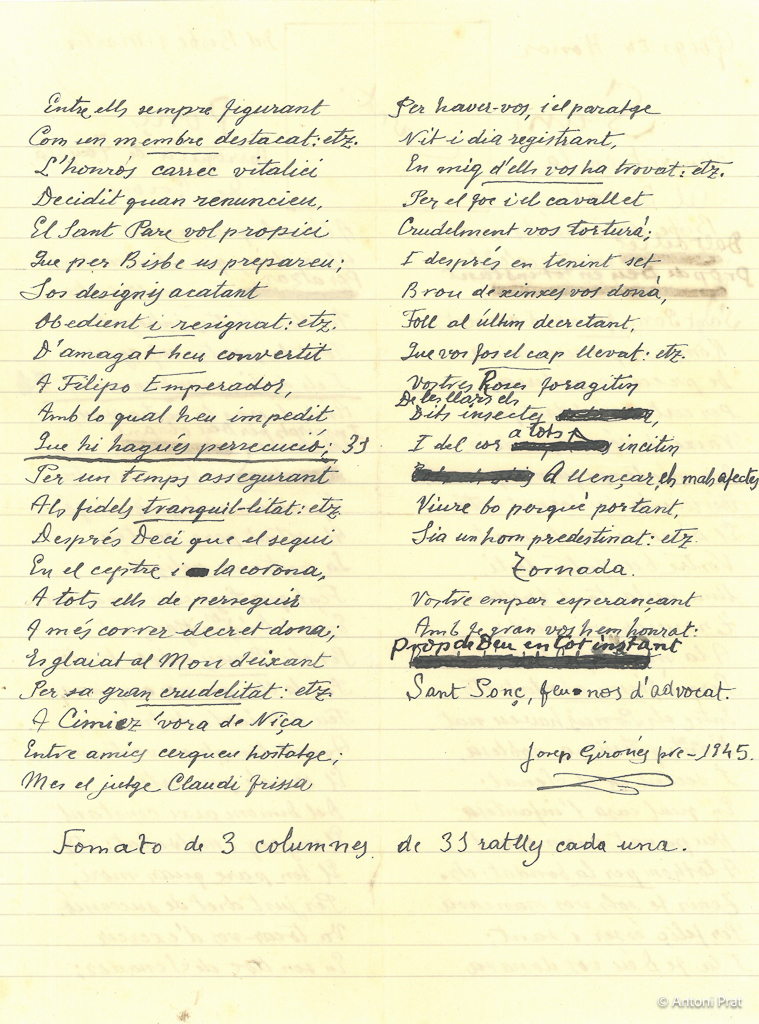 Entre ells sempre figurant
Com un membre destacat: etz.
L'honrós carrec vitalici
Decidit quan renuncieu,
El Sant Pare vol propici
Que per Bisbe us prepareu;
Sos designis acatant
Obedient i resignat: etz.
D'amagat heu convertit
A Filipo Emperador,
Amb lo qual heu impedit
Que hi hagués persecució; 33
Per un temps assegurant
Als fidels tranquil-litat: etz.
Després Deci que el segui
En el ceptre i la corona,
A tots ells de perseguir
A més correr decret dona;
Esglaiat al Mon deixant
Per sa gran crudelitat: etz.
A Cimiez 'vora de Niça
Entre amics cerqueu hostatge;
Mes el jutge Claudi frissa
Per haver-vos, i el paratge
Nit i dia registrant,
En mig d'ells vos ha trovat: etz.
Per el foc i el cavallet
Crudelment vos torturá;
I després en tenint set
Brou de xinxes vos doná,
Foll al últim decretant,
Que vos fos el cap llevat: etz.
Vostres Roses foragitin
De les llars els
Dits insectes,
I del cor a tots incitin
A llençar, els mals afectes
Viure bo perquè portant,
Sia un hom predestinat: etz
Tornada.
Vostre empar esperançant
Amb fe gran vos hem honrat:
Prop de Deu en tot instant
Sant Ponç, feu-nos d'advocat.
Josep Gironés pre-1945.
Fomato de 3 columnes de 33 ratlles cada una.
© Antoni Prat